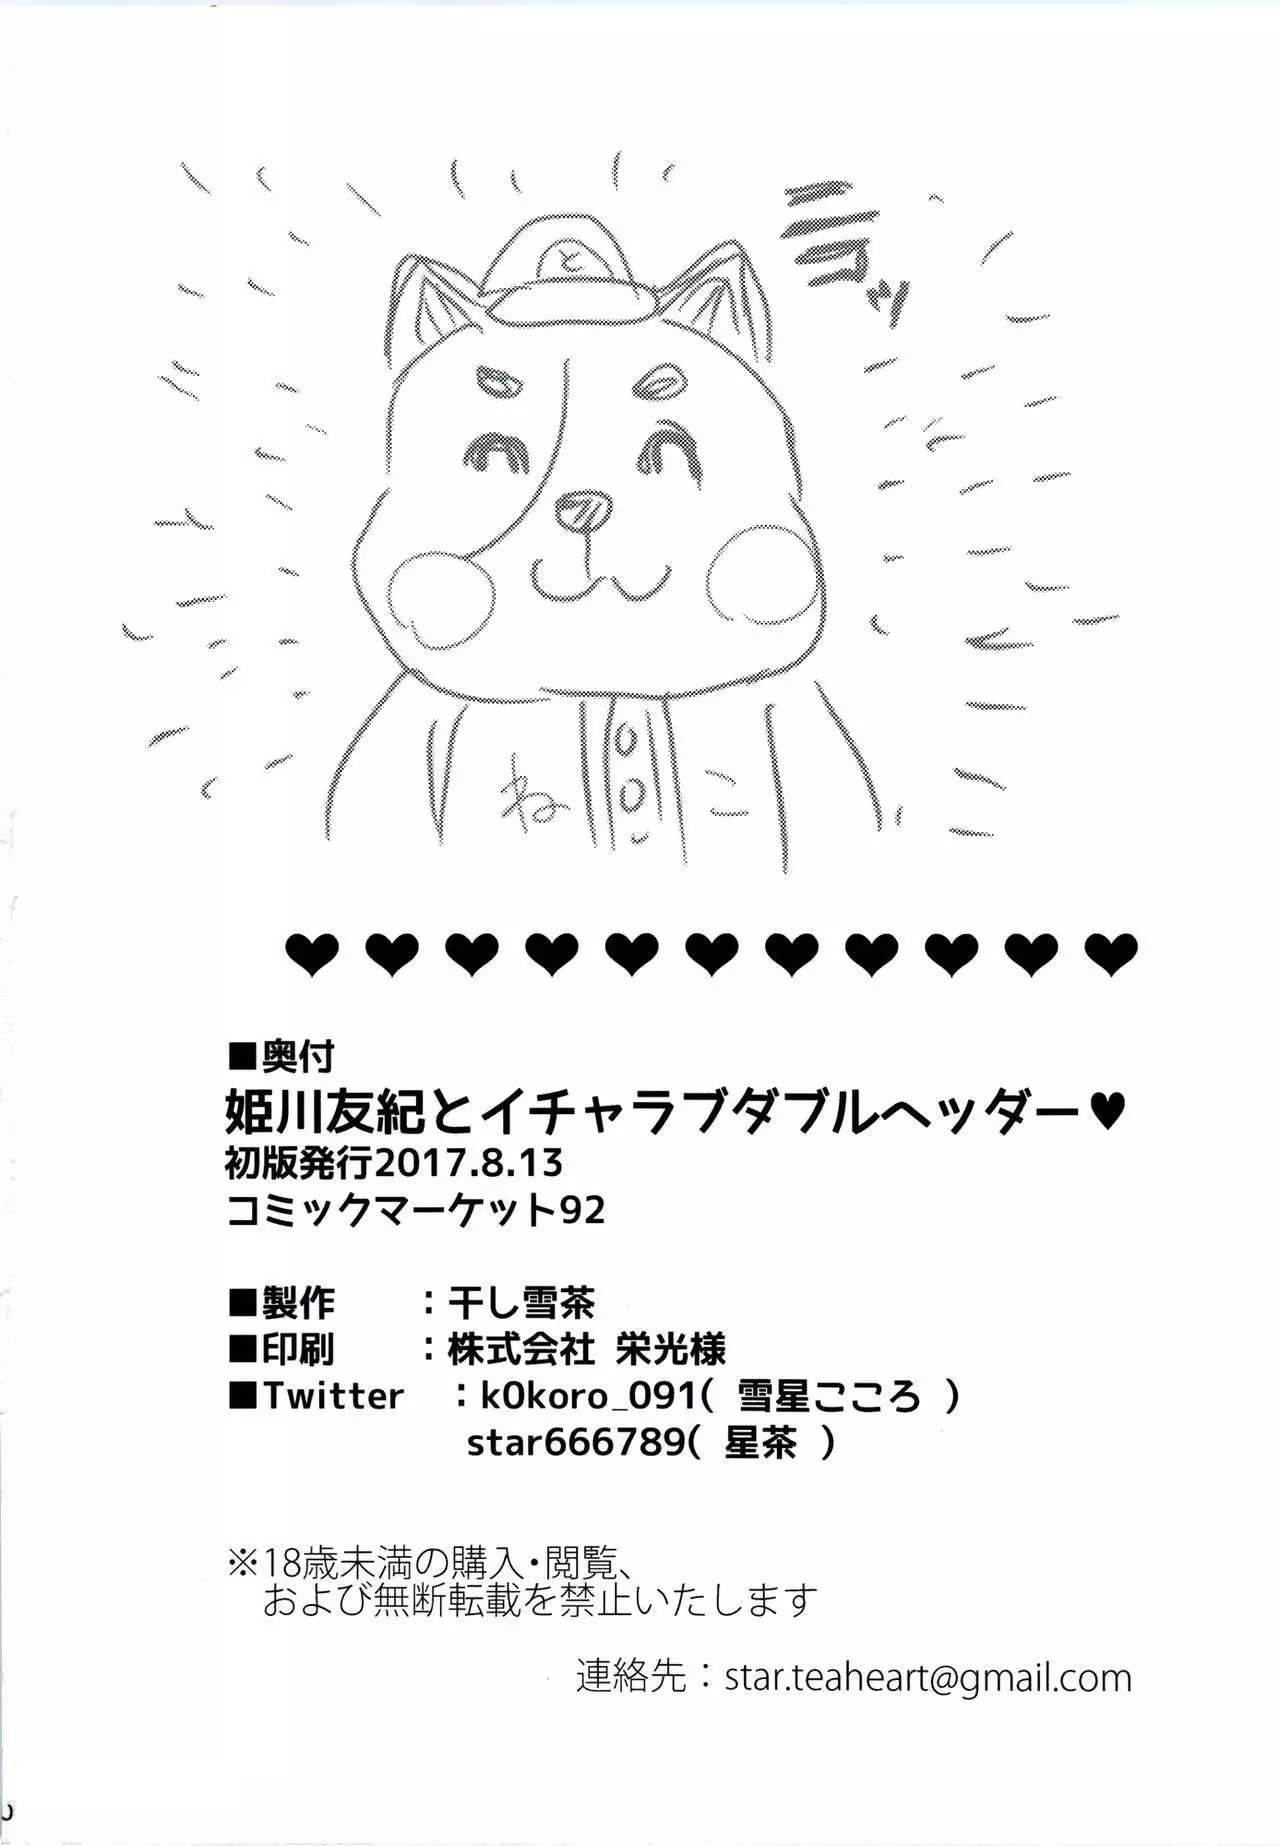 ニコッ
と
ね
こ
■奥付
姫川友紀とイチャラブダブルヘッダー♥
初版発行2017.8.13
コミックマーケット92
■製作　　：干し雪茶
■印刷　　：株式会社 栄光様
■Twitter　：k0koro_091( 雪星こころ )
star666789( 星茶 )
※18歳未満の購入・閲覧、
および無断転載を禁止いたします
連絡先：star.teaheart@gmail.com